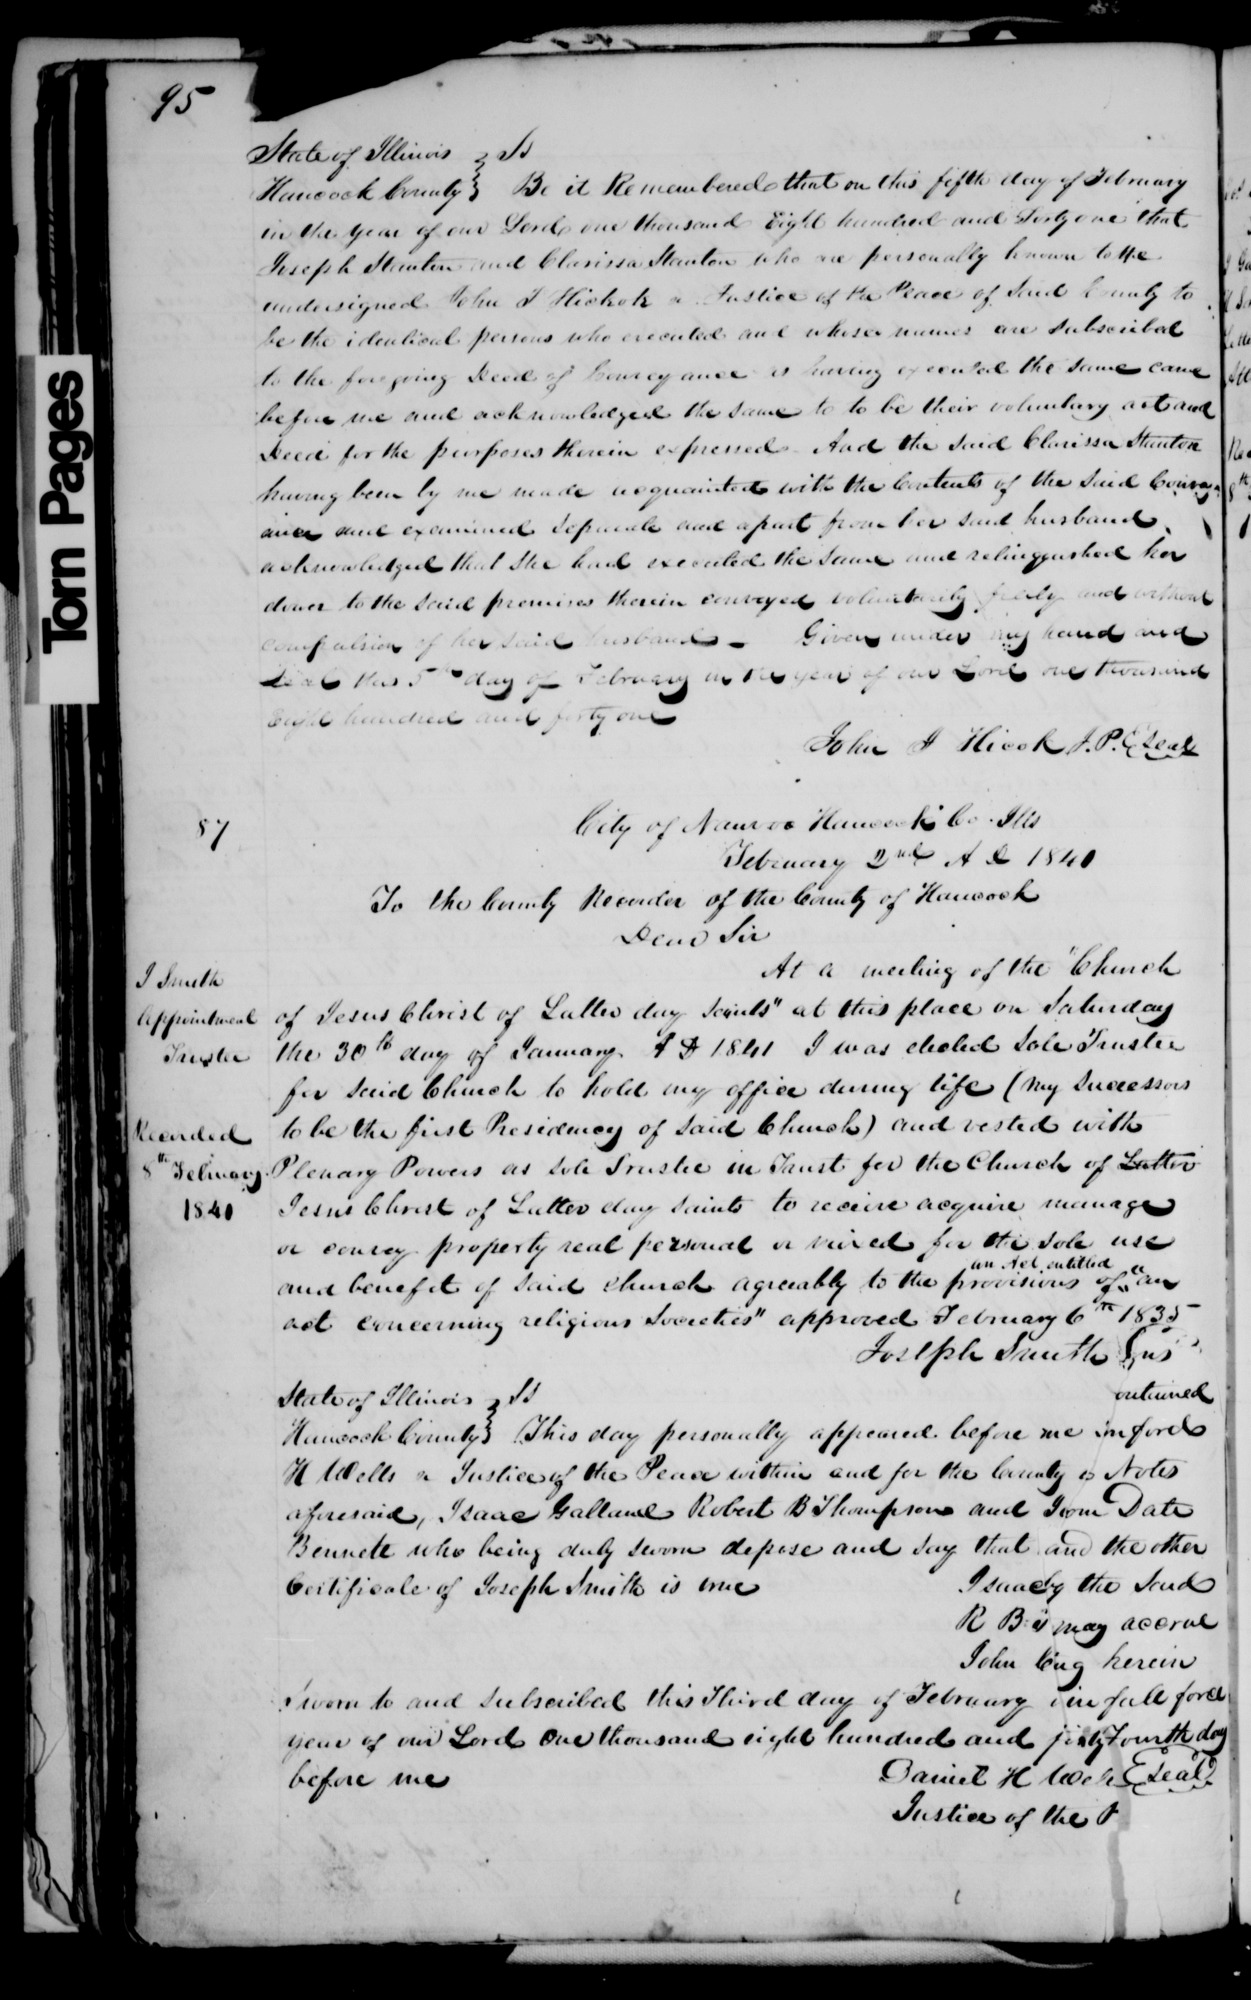 95
State of Illinois } Ss
Hancock County } Be it Remembered that on this fifth day of February
in the year of our Lord one thousand Eight hundred and Forty one that
Joseph Stanton and Clarissa Stanton who are personally known to the
undersigned John J Hickok a Justice of the Peace of said County to
be the identical persons who executed and whose names are subscribed
to the foregoing Deed of Conveyance as having executed the same came
before me and acknowledged the same to to be their voluntary act and
Deed for the purposes therein expressed And the said Clarissa Stanton
having been by me made acquainted with the Contents of the said Convey
ance and examined Separate and apart from her said husband
acknowledged that she had executed the same and relinquished her
dower to the said premises therein conveyed voluntarily freely and without
compulsion of her said husband – Given under my hand and
Seal this 5th day of February in the year of our Lord one thousand
Eight hundred and forty one
John J Hicok J.P. Seal
Torn Pages
87
City of Nauvoo Hancock Co Ills
February 2nd A D 1840
To the County Recorder of the County of Hancock
Dear Sir
J Smith
Appointment
Trustee
Recorded
8th February
1840
At a meeting of the "Church
of Jesus Christ of Latter day saints" at this place on Saturday
the 30th day of January A D 1841 I was elected Sole Trustee
for said Church to hold my office during life (my successors
to be the first Presidency of said Church) and vested with
Plenary Powers as sole Trustee in Trust for the Church of Latter
Jesus Christ of Latter day saints to receive acquire manage
or convey property real personal or mixed for the sole use
and benefit of said church agreeably to the provisions of an Act entitled "an
act concerning religious Societies" approved February 6th 1835
Joseph Smith
State of Illinois } Ss
ontained
Hancock County } This day personally appeared before me in ford
H Wells a Justice of the Peace within and for the County Notes
aforesaid, Isaac Galland Robert B Thompson and Date
Bennett who being duly sworn depose and say that and the other
Certificate of Joseph Smith is true Isaac by the said
R B may accrue
John herein
Sworn to and subscribed this Third day of February in full force
year of our Lord one thousand eight hundred and Fourth day
before me Daniel H Seal
Justice of the P